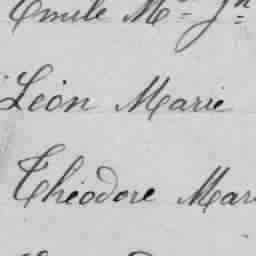 Emile Mie Jn
Léon Marie
Théodore Mar